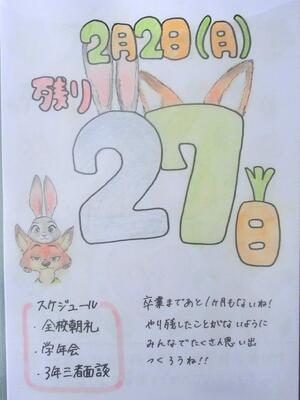 2月2日(月)
残り
27日
スケジュール
・全校朝礼
・学年会
・3年三者面談
卒業まであと1ヶ月もないね!
やり残したことがないように
みんなでたくさん思い出
つくろうね!!